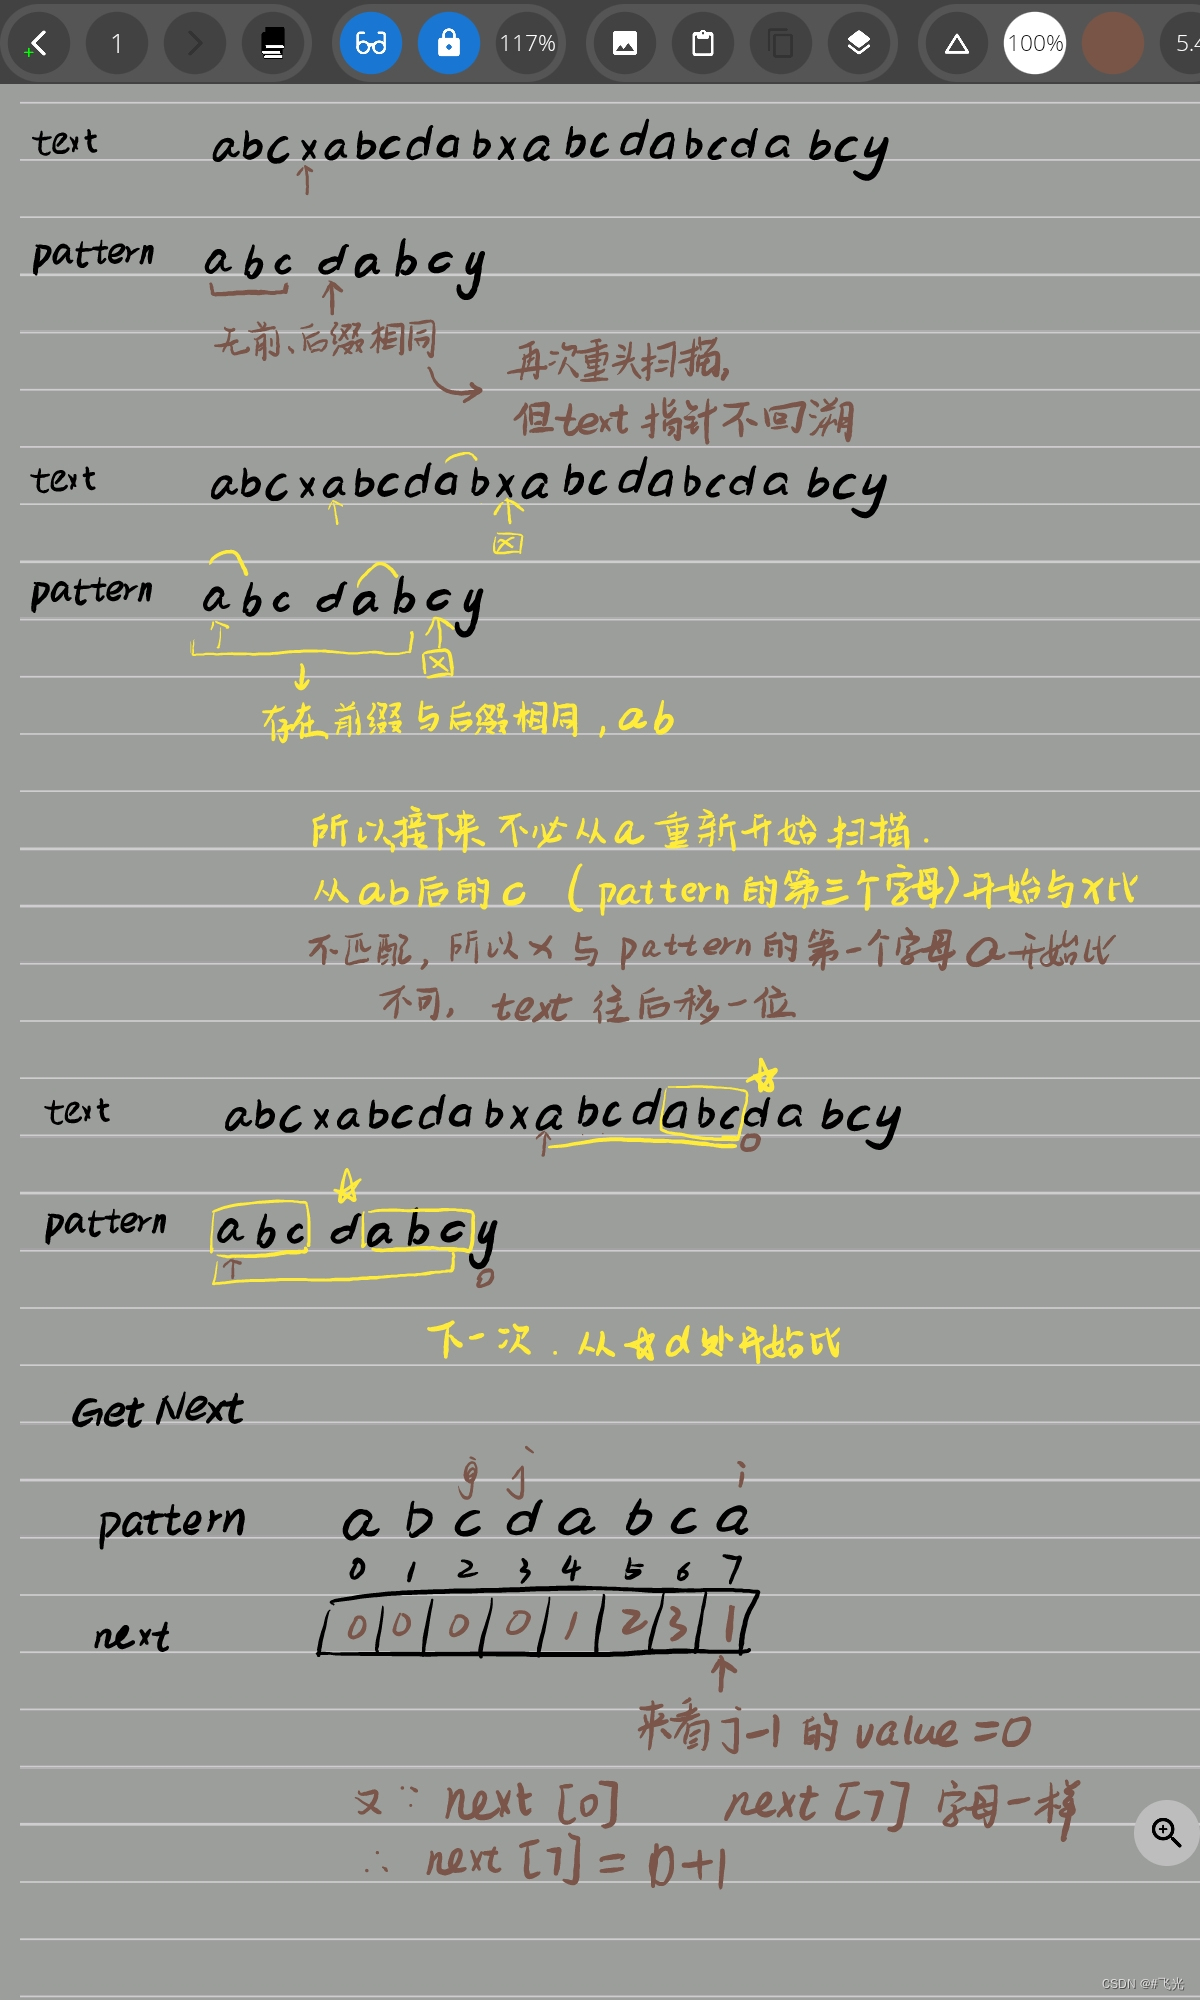 1 117% 100% 5.4
text abcxabcdabxabcdabcdabcy
pattern abcdabcy
无前、后缀相同
再次重头扫描,
但text指针不回溯
text abcxabcdabxabcdabcdabcy
x
pattern abcdabcy
x
存在前缀与后缀相同,ab
所以接下来不必从a重新开始扫描.
从ab后的c (pattern的第三个字母)开始与x比
不匹配,所以x与pattern的第一个字母a开始比
不可, text往后移一位
text abcxabcdabxabcdabcdabcy
pattern abcdabcy
下一次.从☆d处开始比
Get Next
j i
pattern a b c d a b c a
0 1 2 3 4 5 6 7
next 0 0 0 0 1 2 3 1
来看j-1的value=0
又∵ next[0] next[7]字母一样
∴ next[7]=0+1
CSDN @#飞光